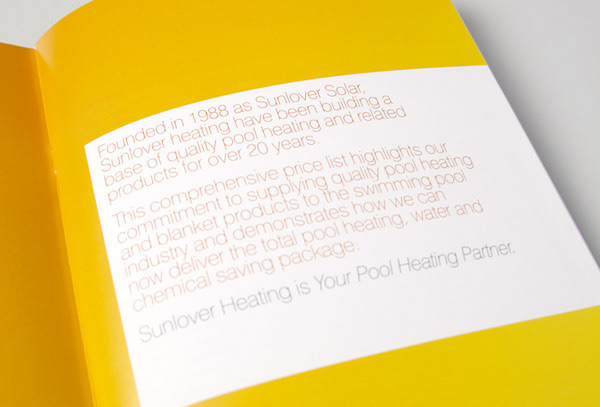 Founded in 1988 as Sunlover Solar,
Sunlover heating have been building a
base of quality pool heating and related
products for over 20 years.
This comprehensive price list highlights our
commitment to supplying quality pool heating
and blanket products to the swimming pool
industry and demonstrates how we can
now deliver the total pool heating, water and
chemical saving package.
Sunlover Heating is Your Pool Heating Partner.